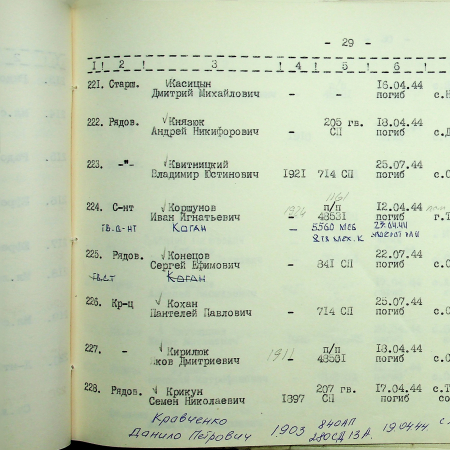 - 29 -
1 ! 2 ! 3 ! 4 ! 5 ! 6 !
221. Старш. Касицын 16.04.44
Дмитрий Михайлович - - погиб с.Н
222. Рядов. Князюк 205 гв. 18.04.44
Андрей Никифорович - СП погиб с.Д
223. -"- Квитницкий 25.07.44
Владимир Юстинович 1921 714 СП погиб с.
224. С-нт Коршунов п/п 12.04.44
Иван Игнатьевич - 48531 погиб г.Т
гв. Коган - 5560 МСБ
225. Рядов. Конецов 22.07.44
Сергей Ефимович - 841 СП погиб с.С
Коган
226. Кр-ц Кохан 25.07.44
Пантелей Павлович - 714 СП погиб с.
227. - Кирилюк 1911 п/п 18.04.44
Яков Дмитриевич - 48531 погиб с.С
228. Рядов. Крикун 207 гв. 17.04.44 с.Т
Семен Николаевич 1897 СП погиб со
Кравченко
Данило Петрович 1903 840АП 19.04.44 с.
280СД 13А.